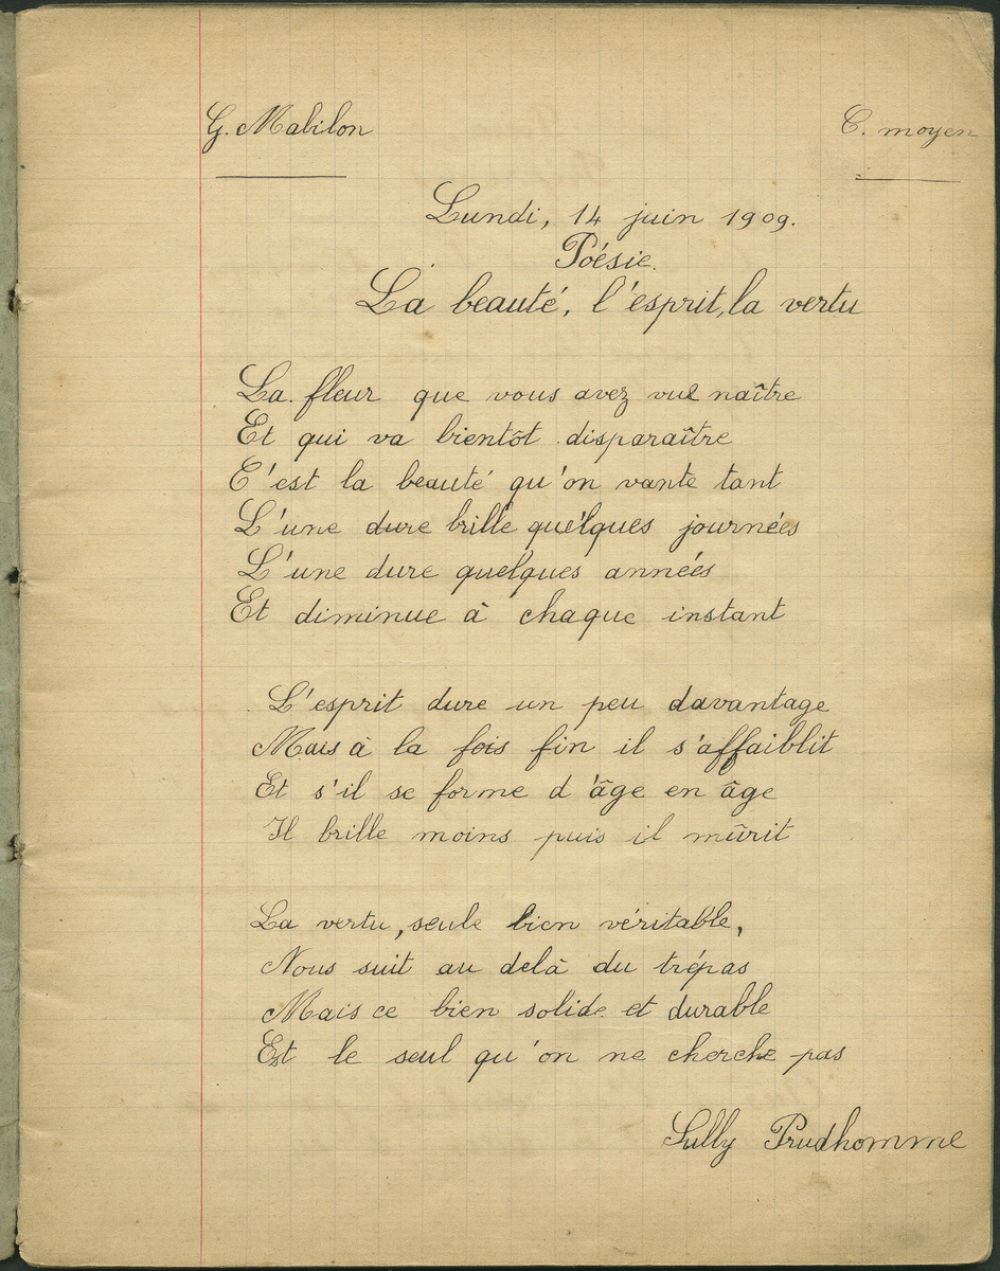 G. Mabilon
C. moyen
Lundi, 14 juin 1909.
Poésie.
La beauté, l'esprit, la vertu
La fleur que vous avez vue naître
Et qui va bientôt disparaître
C'est la beauté qu'on vante tant
L'une dure brille quelques journées
L'une dure quelques années
Et diminue à chaque instant
L'esprit dure un peu davantage
Mais à la fois fin il s'affaiblit
Et s'il se forme d'âge en âge
Il brille moins puis il mûrit
La vertu, seule bien véritable,
Nous suit au delà du trépas
Mais ce bien solide et durable
Est le seul qu'on ne cherche pas
Sully Prudhomme